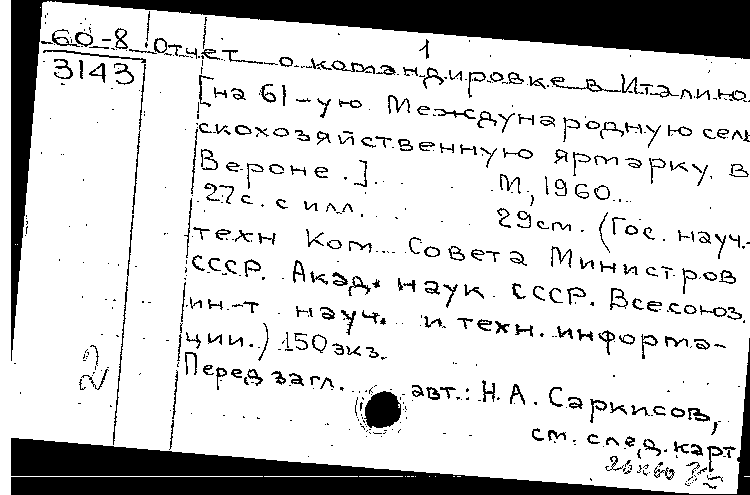 1
60-8 Отчет о командировке в Италию
3143
[на 61-ую Международную сель
скохозяйственную ярмарку в
Вероне.]. М., 1960.
27с. с илл. 29см. (Гос. науч.-
техн Ком Совета Министров
СССР. Акад. наук СССР. Всесоюз.
ин-т науч. и техн. информа-
ции.) 150 экз.
Перед загл. авт.: Н.А. Саркисов,
2
см. след. карт.